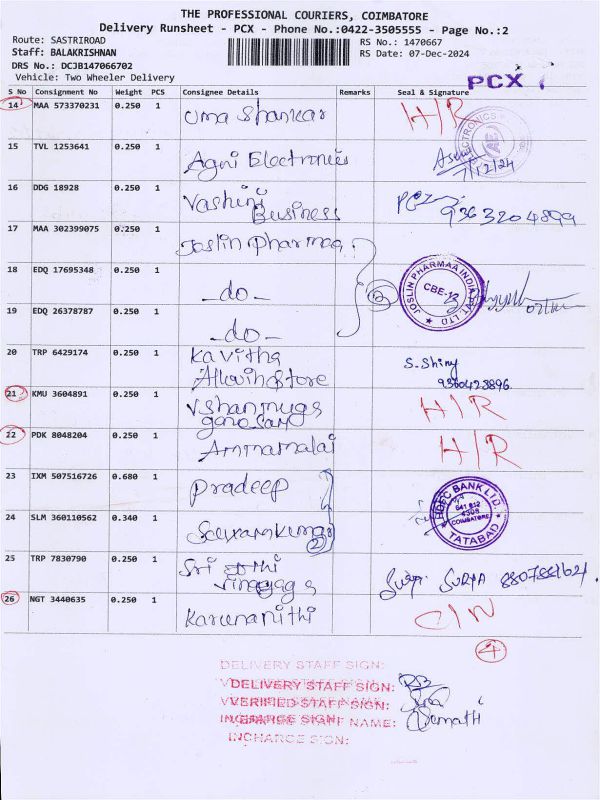 THE PROFESSIONAL COURIERS, COIMBATORE
Delivery Runsheet - PCX - Phone No.:0422-3505555 - Page No.:2
Route: SASTRIROAD
Staff: BALAKRISHNAN
DRS No.: DCJB147066702
Vehicle: Two Wheeler Delivery
RS No.: 1470667
RS Date: 07-Dec-2024
PCX
S No Consignment No Weight PCS Consignee Details Remarks Seal & Signature
14 MAA 573370231 0.250 1 Uma Shankar H/R
15 TVL 1253641 0.250 1 Agni Electronics 7/12/24
16 DDG 18928 0.250 1 Vashini Business 9363204899
17 MAA 302399075 0.250 1 Joslin pharmaa
18 EDQ 17695348 0.250 1 -do- JOSLIN PHARMAA INDIA PVT. LTD CBE-12
19 EDQ 26378787 0.250 1 -do-
20 TRP 6429174 0.250 1 Kavitha Store S.Shiny 9360423896
21 KMU 3604891 0.250 1 H/R
22 PDK 8048204 0.250 1 Ammamalai H/R
23 IXM 507516726 0.680 1 Pradeep HDFC BANK LTD. 641 012 COIMBATORE TATABAD
24 SLM 360110562 0.340 1 2
25 TRP 7830790 0.250 1 Sri SURYA
26 NGT 3440635 0.250 1 Karunanithi C/N
4
DELIVERY STAFF SIGN:
DELIVERY STAFF SIGN:
VERIFIED STAFF SIGN:
STAFF NAME:
INCHARGE SIGN: